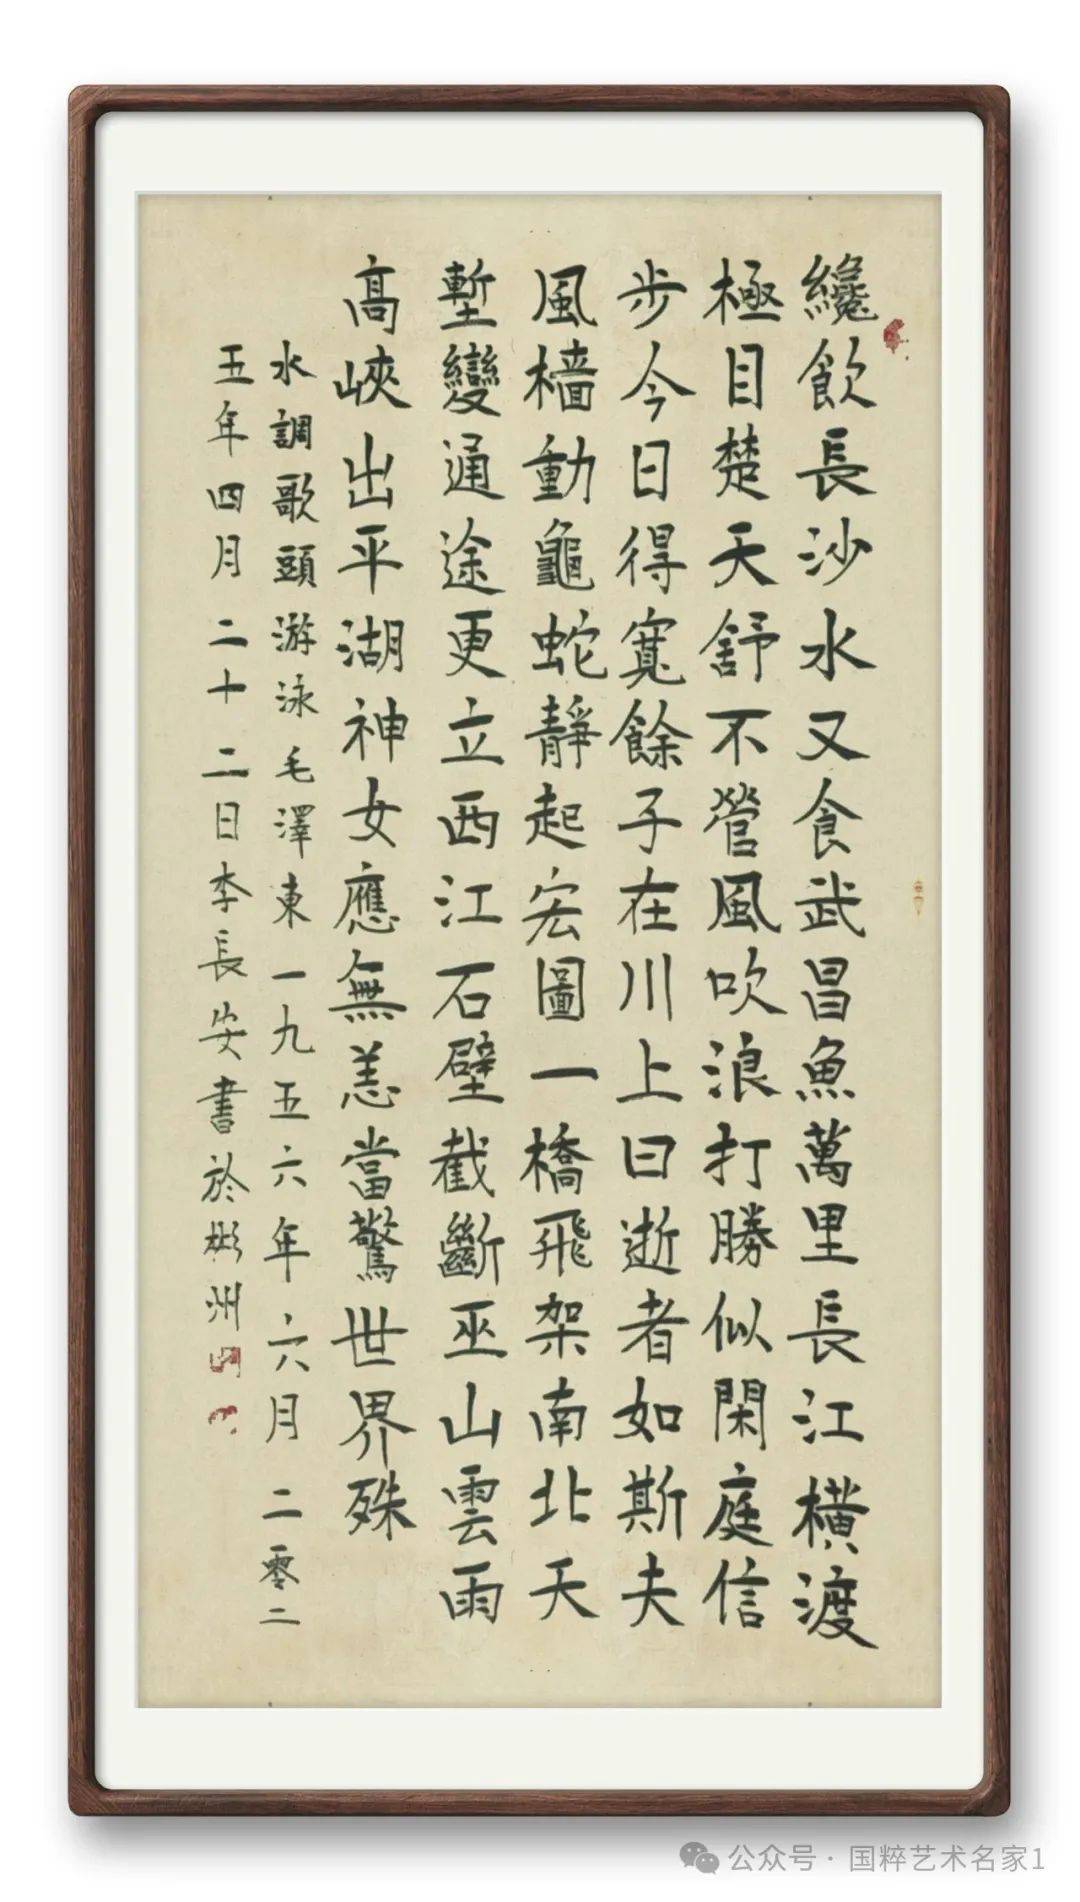 纔飲長沙水又食武昌魚萬里長江橫渡
極目楚天舒不管風吹浪打勝似閑庭信
步今日得寬餘子在川上曰逝者如斯夫
風檣動龜蛇靜起宏圖一橋飛架南北天
塹變通途更立西江石壁截斷巫山雲雨
高峽出平湖神女應無恙當驚世界殊
水調歌頭游泳毛澤東一九五六年六月二零二
五年四月二十二日李長安書於彬州
公众号·国粹艺术名家1